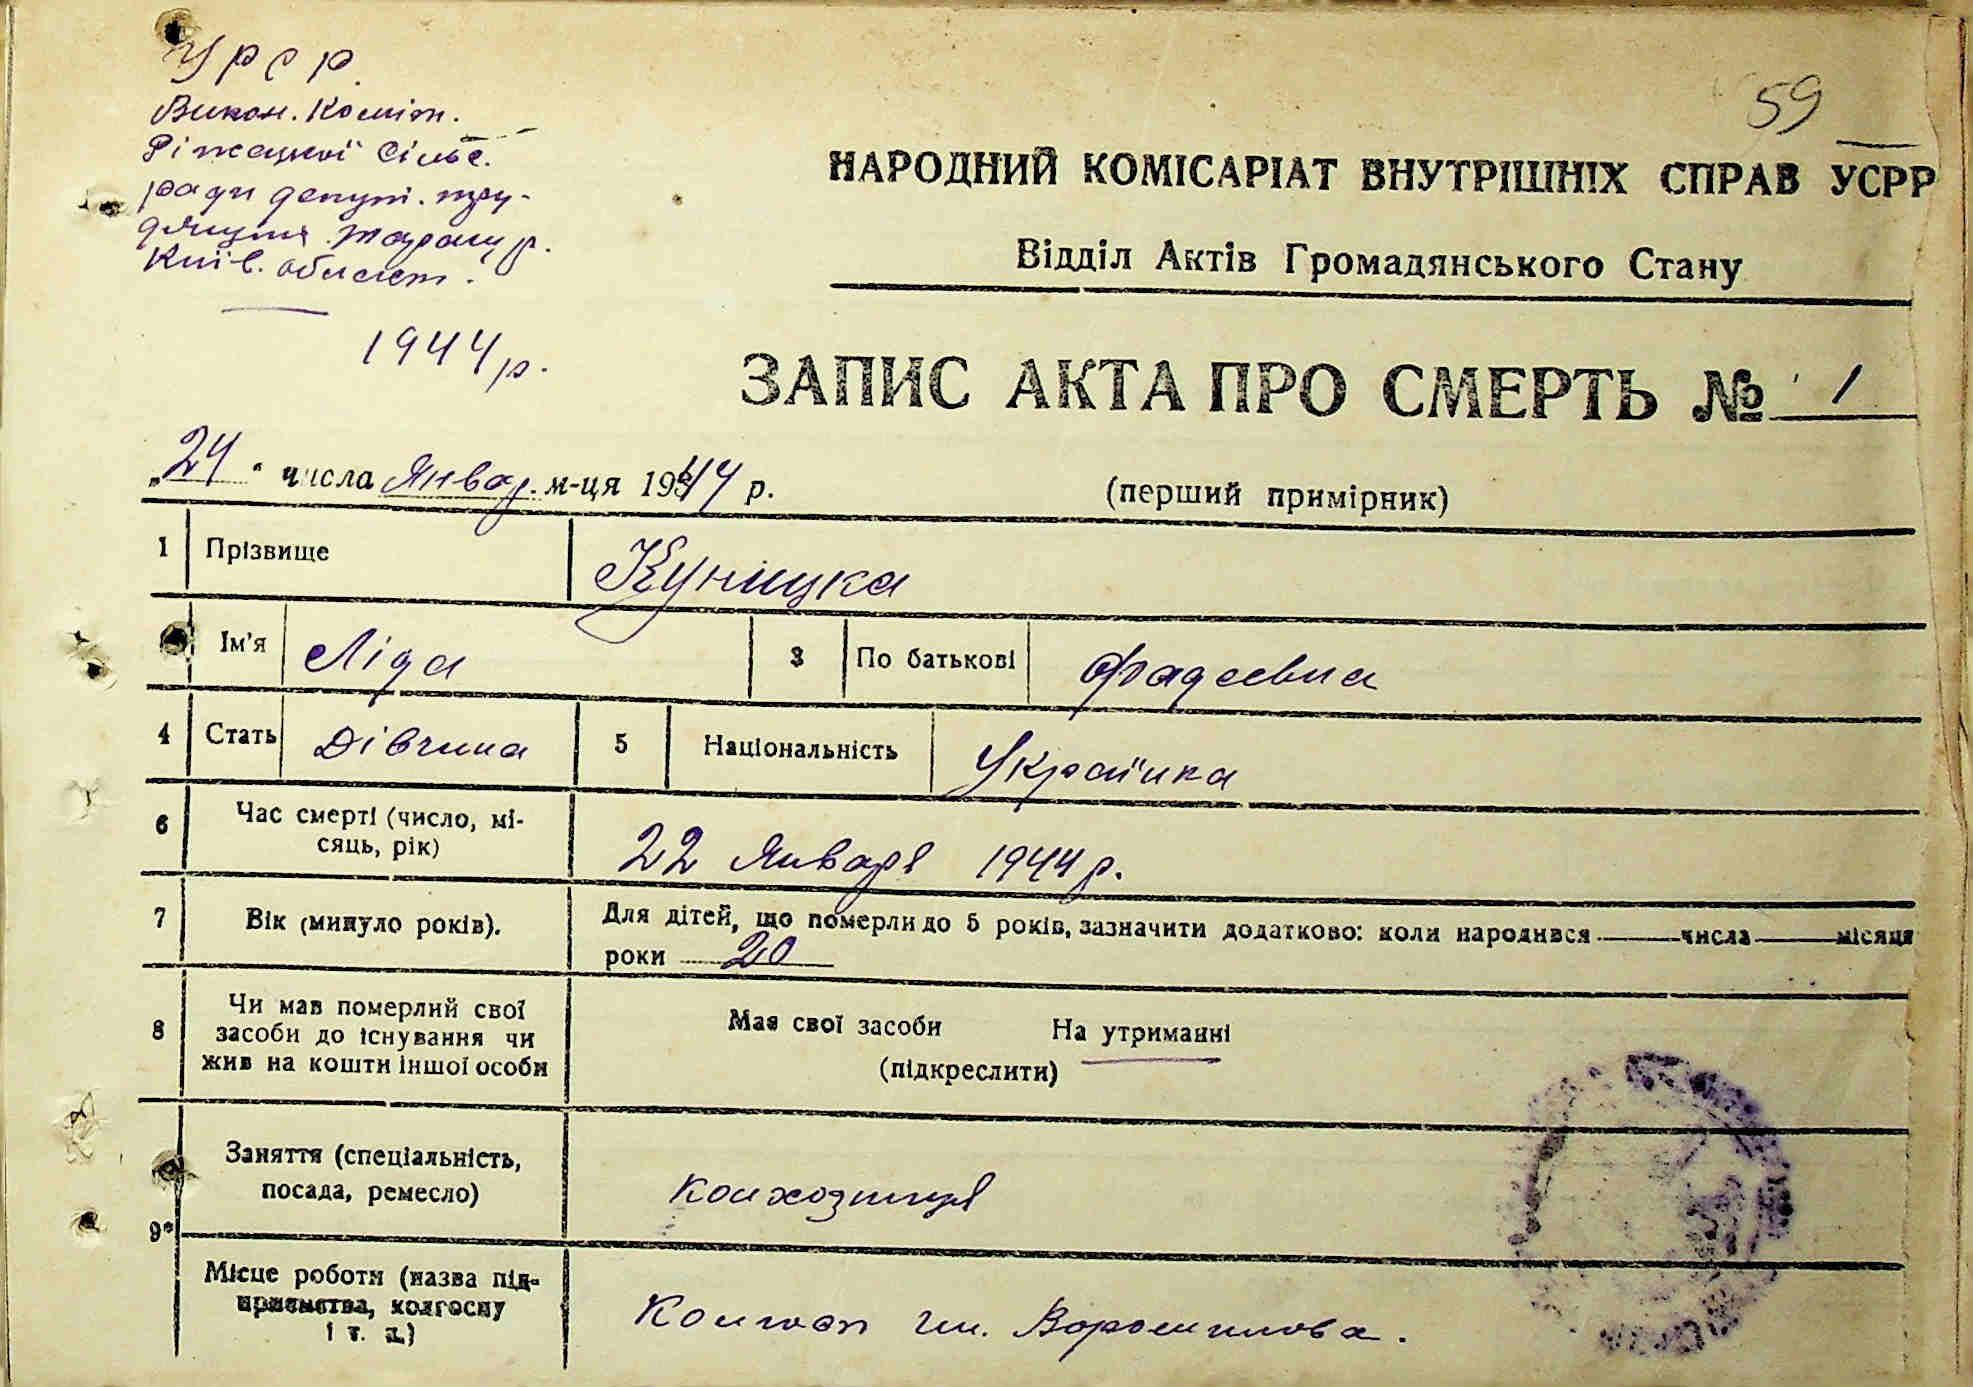 УРСР
Викон. Коміт.
Ріжецької Сільс.
ради депут. тру-
дящих Таращ р.
Київ. области.
1944 р.
59
НАРОДНИЙ КОМІСАРІАТ ВНУТРІШНІХ СПРАВ УСРР
Відділ Актів Громадянського Стану
ЗАПИС АКТА ПРО СМЕРТЬ № 1
„24" числа Январ. м-ця 1944 р.
(перший примірник)
1 Прізвище Куницка
Ім'я Ліда 3 По батькові Фадеевна
4 Стать Дівчина 5 Національність Українка
6 Час смерті (число, мі-
сяць, рік) 22 Января 1944 р.
7 Вік (минуло років). Для дітей, що померли до 5 років, зазначити додатково: коли народився числа місяця
роки 20
8 Чи мав померлий свої
засоби до існування чи
жив на кошти іншої особи
Має свої засоби На утриманні
(підкреслити)
9 Заняття (спеціальність,
посада, ремесло) колхозниця
Місце роботи (назва під-
приємства, колгоспу
і т. д.) Колгосп им. Ворошилова.